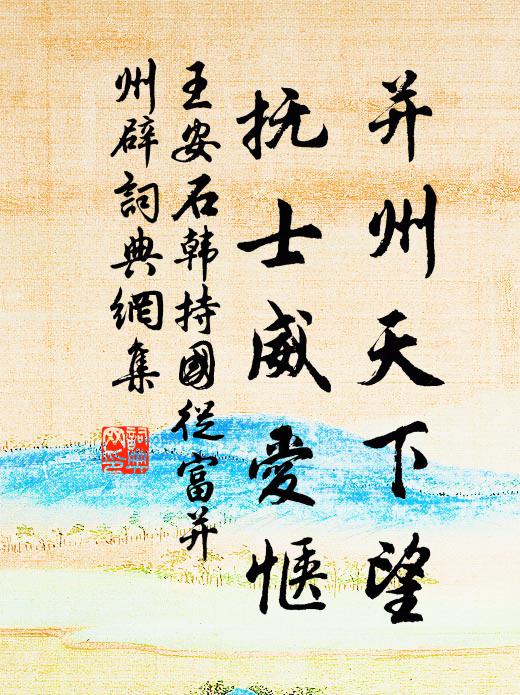 并州天下望
抚士威爱惬
王安石韩持國従富并
州辟詞典網集